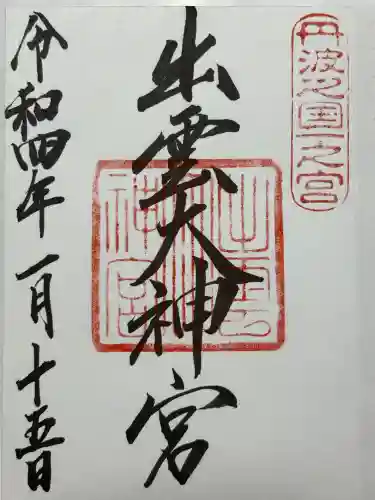 丹波之国一之宮
出雲大神宮
令和四年一月十五日